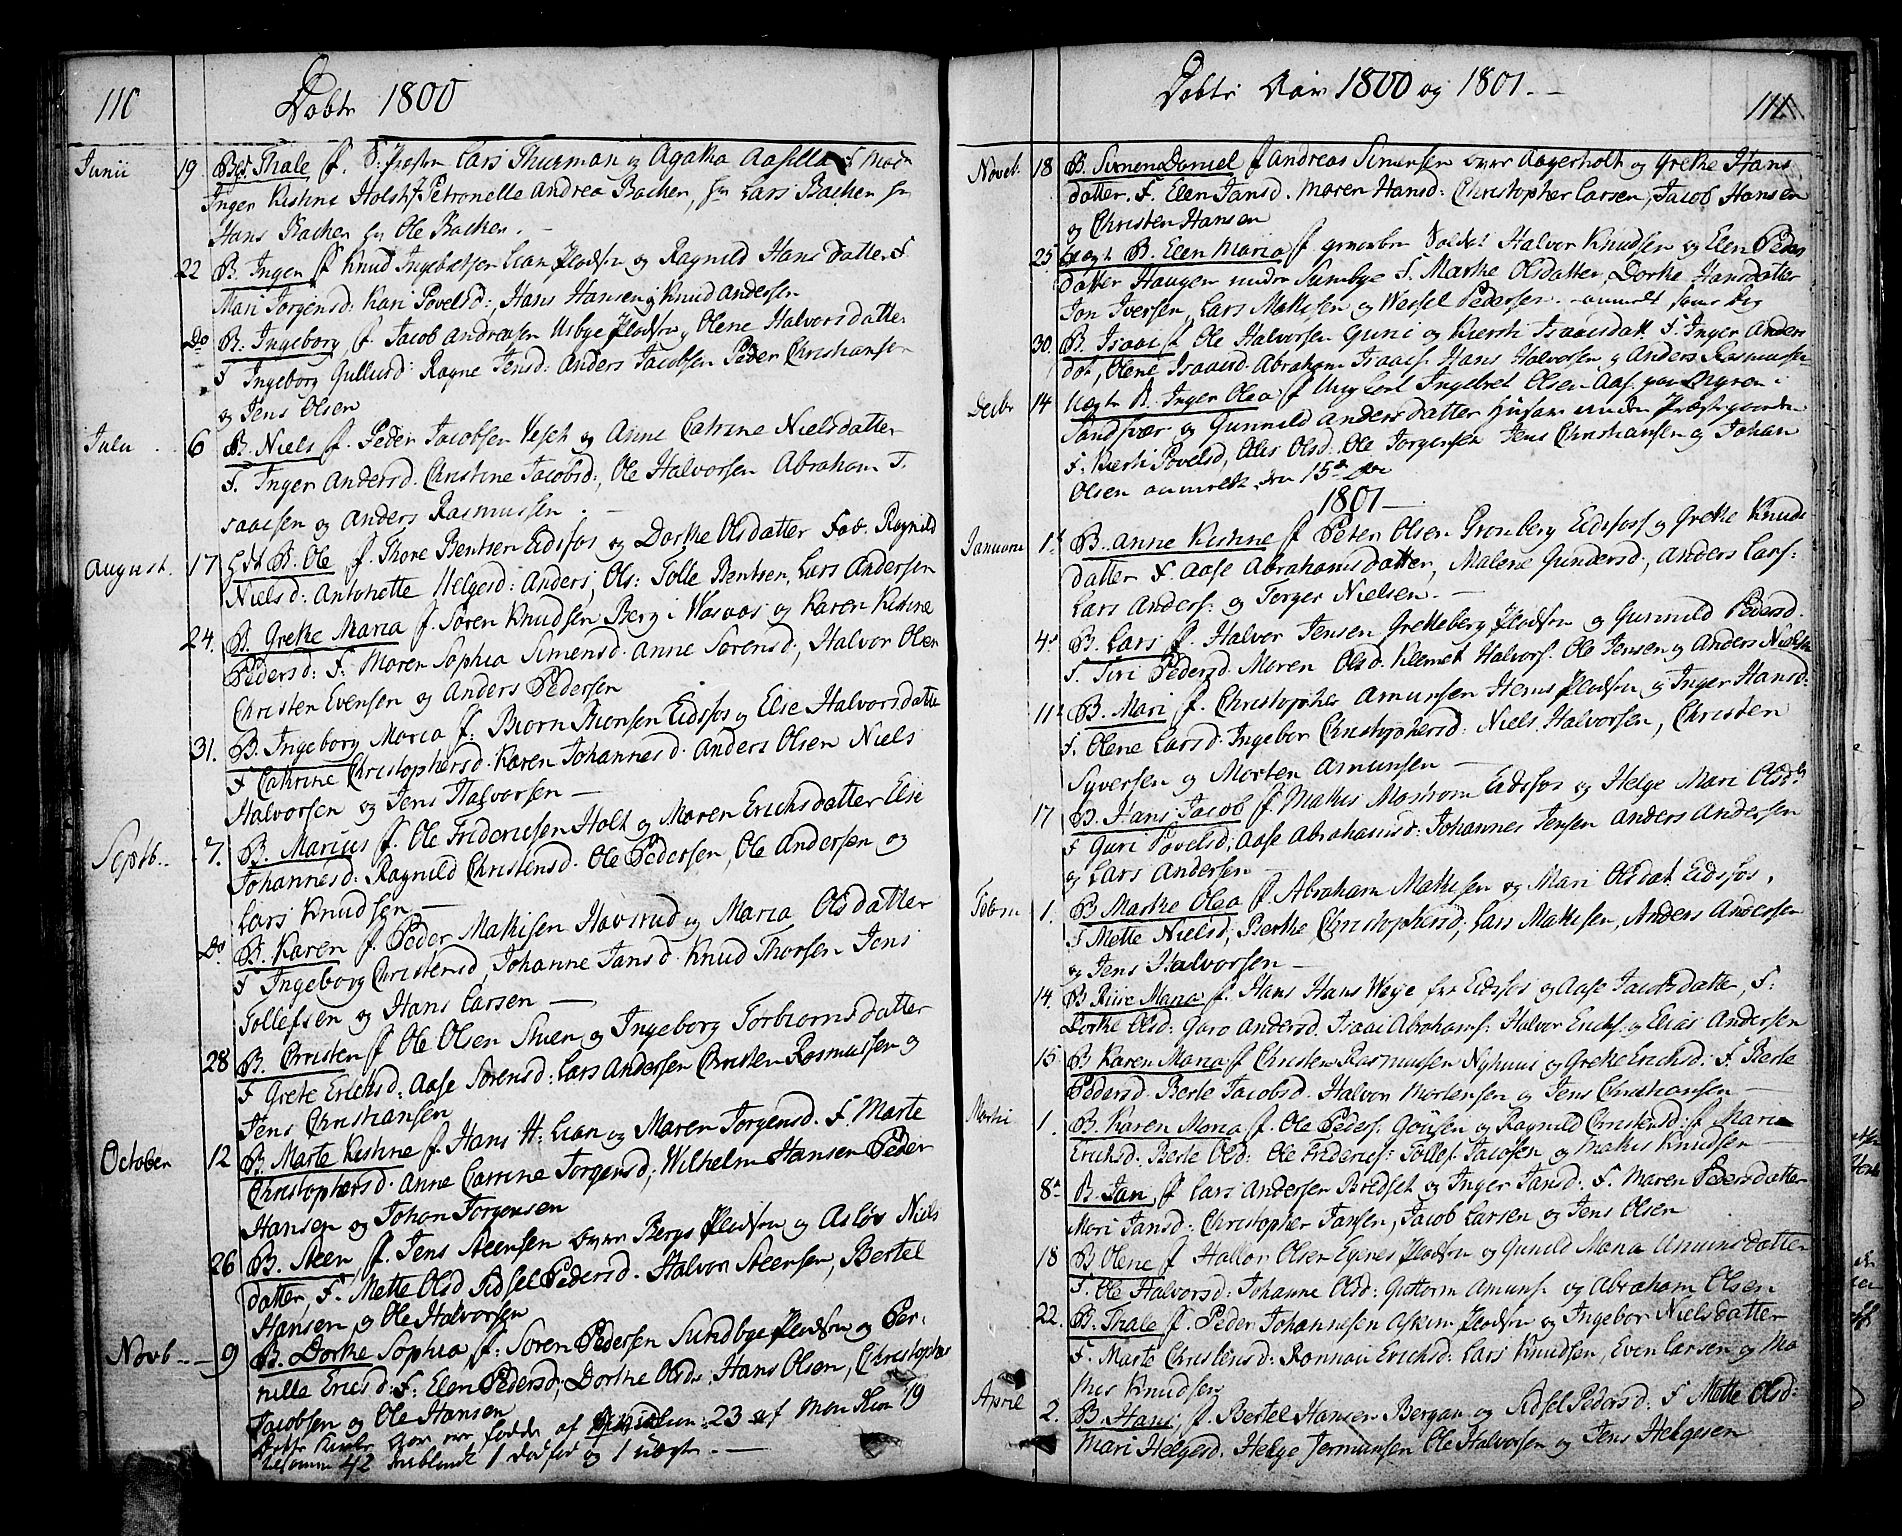 110
Døbte 1800
Junii 19 B. Thale f. S: Præsten Lars Thurman og Agatha Aasilla F Mad
Inger Kistine Holst Petronelle Andrea Backen, hr Lars Backen hr
Hans Backen hr Ole Backen. —
22 B. Inger f Knud Ingebretsen Lian Pladsen og Ragnild Hansdatter F
Mari Jorgensd: Kari Povelsd: Hans Hansen og Knud Andersen
Do B. Ingeborg f Jacob Andreasen Usbye Pladsen og Olene Halvorsdatter
F Ingeborg Gullusd: Ragne Jensd: Anders Jacobsen Peder Christiansen
og Jens Olsen
Julii 6 B. Niels f. Peder Jacobsen og Anne Catrine Nielsdatter
F. Inger Andersd. Christine Jacobsd: Ole Halvorsen Abraham I.
saacsen og Anders Rasmussen. —
August. 17 B. Ole f. Thore Bentsen Eidsfos og Dorthe Olsdatter Fad. Ragnild
Nielsd: Antonette Helgesd: Anders Ols: Tolle Bentsen, Lars Andersen
24. B. Grethe Maria f. Søren Knudsen Berg i Wasaas og Karen Kistine
Pedersd: F: Maren Sophia Simensd. Anne Sørensd, Halvor Olsen
Christen Evensen og Anders Pedersen
31. B. Ingeborg Maria f: Biørn Thorsen Eidsfos og Else Halvorsdatter
F Cathrine Christophersd. Karen Johannesd. Anders Olsen Niels
Halvorsen og Jens Halvorsen —
Septb. 7. B. Marius f. Ole Fridericsen Holt og Maren Erichsdatter Else
Johannesd: Ragnild Christensd. Ole Pedersen, Ole Andersen og
Lars Knudsen —
Do. B. Karen f Peder Mathisen Havsrud og Maria Olsdatter
F Ingeborg Christensd, Johanne Jansd. Knud Thorsen Jens
Tollefsen og Hans Larsen —
28 B. Christen f Ole Olsen Stuen og Ingeborg Torbiornsdatter
F Grete Erichsd: Aase Sørensd: Lars Andersen Christen Rasmussen og
Jens Christiansen
October 12 B. Marte Kistine f. Hans H: Lian og Maren Jorgensd. F. Marte
Christophersd. Anne Catrine Jorgensd, Wilhelm Hansen Peder
Hansen og Johan Jorgensen
26 B. Steen f. Jens Steensen Berg Pladsen og Asløv Niels
datter, F. Mette Olsd Sidsel Pedersd. Halvor Steensen, Bertel
Hansen og Ole Halvorsen
Novb — 9 B. Dorthe Sophia f: Søren Pedersen Sundbye Pladsen og Per-
nille Ericsd: F: Elen Pedersd, Dorthe Olsd, Hans Olsen, Christopher
Jacobsen og Ole Hansen
fødde af Qvindekiøn: 23 af Mandkiøn 19
Tilsamen 42 iblandt 1 dødfød og 1 uægte. —
Døbte Aar 1800 og 1801. —
111
Novbr. 18 B. Simen Daniel f Andreas Simensen Aagerholt og Grethe Hans
datter. F. Elen Jansd. Maren Hansd: Christopher Larsen, Jacob Hansen
og Christen Hansen
25 uægte B. Elen Maria f Soldat Halvor Knudsen og Elen Peders
datter Haugen under Sundbye F. Marthe Olsdatter, Dorthe Hansdatter
Jon Iversen, Lars Mathisen og Wessel Pedersen. — anmeldt same Dag
30. B. Isaac f Ole Halvorsen Guni og Kiersti Isaacsdatt. F. Inger Anders
dat, Olene Isaacsd. Abraham Isaacs. Hans Halvorsen og Anders Rasmussen
Decbr 14 uægte B. Inger Olea f Ungkarl Ingebret Olsen Aas paa i
Sandsvær og Gunnild Andersdatter under Præstegaarden
F. Kiersti Povelsd, Olis Olsd. Ole Jorgensen Jens Christiansen og Johan
Olsen anmeldt den 15de
1801 —
Januarii 1. B. Anne Kistine f Peter Olsen Gronberg Eidsfos og Grethe Knuds
datter F. Aase Abrahamsdatter, Malene Gundersd: Anders Lars:
Lars Anders: og Torger Nielsen. —
4. B. Lars f. Halvor Jensen Gretteberg Pladsen og Gunnild Pedersd.
F. Siri Pedersd. Maren Olsd. Klemet Halvors. Ole Jensen og Anders Nielsen
11. B. Mari f. Christopher Amunsen Hems Pladsen og Inger Hansd.
F. Olene Larsd: Ingebor Christophersd: Niels Halvorsen, Christen
Syversen og Morten Amunsen —
17 B. Hans Jacob f Mathis Mostrom Eidsfos og Helge Mari Olsd.
F Guri Povelsd, Aase Abrahamsd: Johannes Jensen Anders Andersen
og Lars Andersen —
Febru 1. B Marthe Olea f Abraham Mathisen og Mari Olsdat. Eidsfos.
F Mette Nielsd, Berthe Christophersd, Lars Mathisen, Anders Andersen
og Jens Halvorsen —
14. B Maria f. Hans Hans Weye fra Eidsfos og Aase Jacobsdatter, F:
Dorthe Olsd: Guro Andersd. Isaac Abrahams: Halvor Erichs. og Elias Andersen
15. B Karen Maria f Christen Rasmussen Nyhuus og Grethe Erichsd: F. Berte
Pedersd. Berte Jacobsd. Halvor Mortensen og Jens Christiansen —
Martii 1. B. Karen Maria f. Ole Peders: og Ragnild Christensd: f. Maria
Erichsd. Berte Olsd: Ole Frideric: Tollef Jacobsen og Mathis Knudsen
8. B. Jan f Lars Andersen Bredset og Inger Jansd: F. Maren Pedersdatter
Mari Jansd: Christopher Jansen, Jacob Larsen og Jens Olsen
18 B Olene f Halvor Olsen Egenes Pladsen og Gunild Maria Amunsdatter
F. Ole Halvorsd: Johanne Olsd: Guttorm Amuns. og Abraham Olsen
22. B. Thale f. Peder Johannesen Askim Pladsen og Ingebor Nielsdatter
F. Marte Christensd: Ronnau Erichsd: Lars Knudsen, Even Larsen og Ma
this Knudsen
April 2. B. Hans f. Bertel Hansen Bergan og Sidsel Pedersd: F Mette Olsd:
Mari Helgesd. Helge Jermunsen Ole Halvorsen og Jens Helgesen